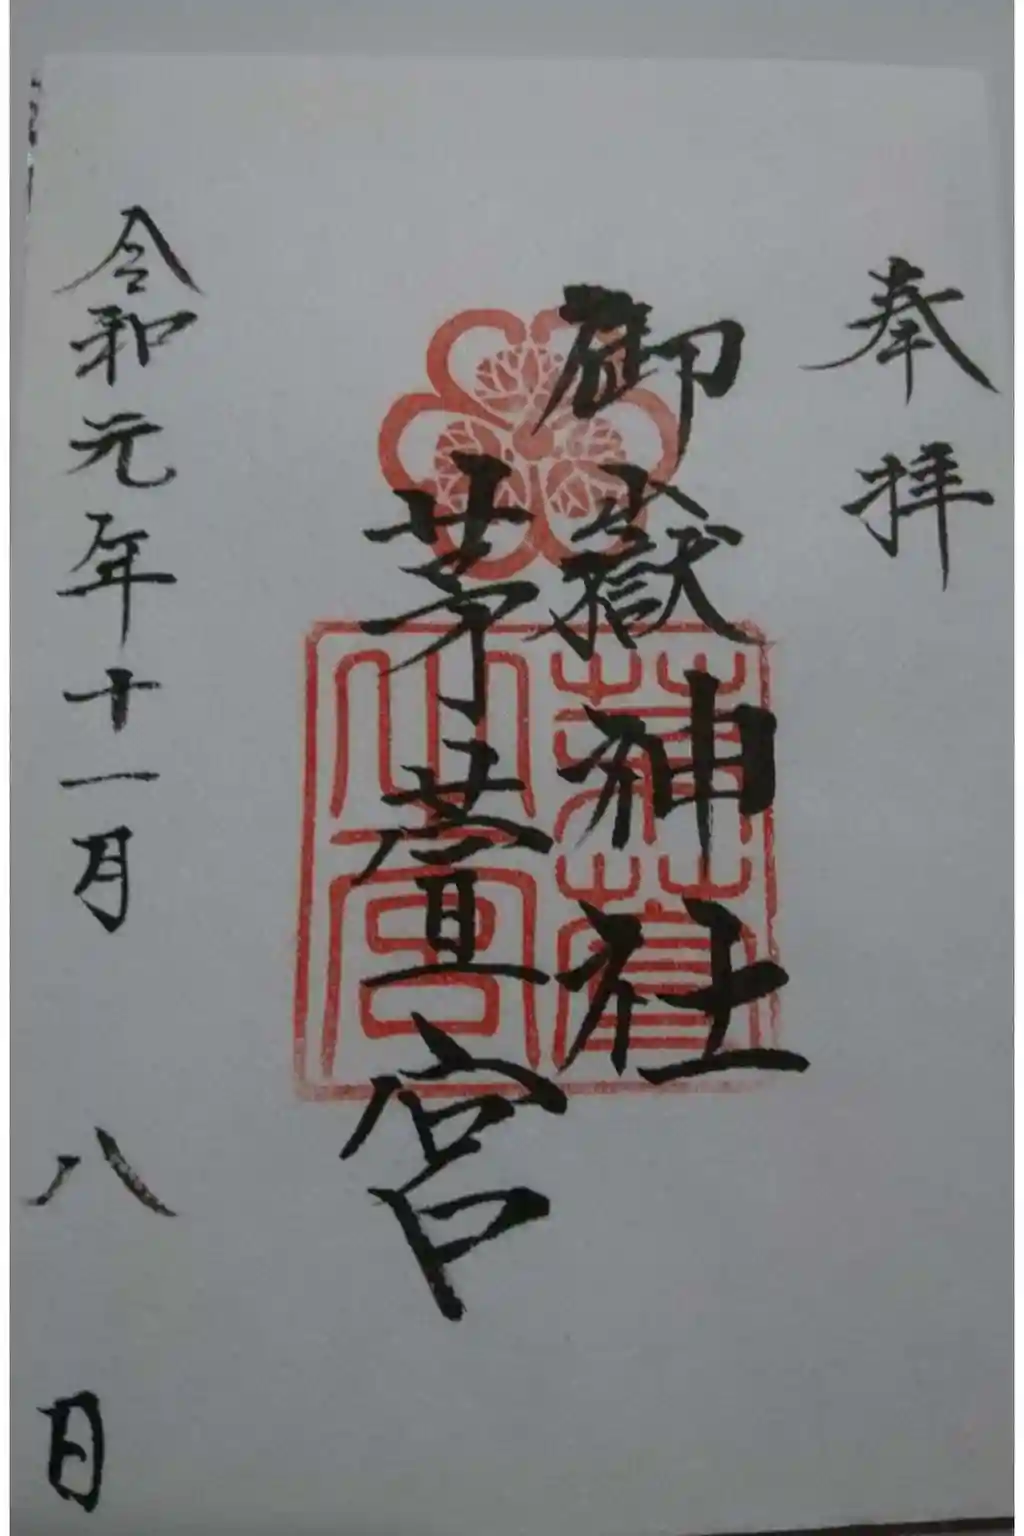 奉拝
御嶽神社
茅萱宮
令和元年十一月八日